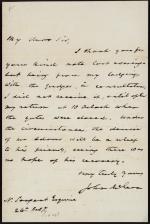 My dear Sir,
I thank you for
your kind note last evening
but being from my lodging
with the Judges in consultation
I did not receive it, until after
my return at 10 O'clock when
the gates were closed. Under
the circumstances the
of no doubt will be a
to his friends, seeing there was
no hope of his recovery.
Very truly yours
John
N. Esquire
26